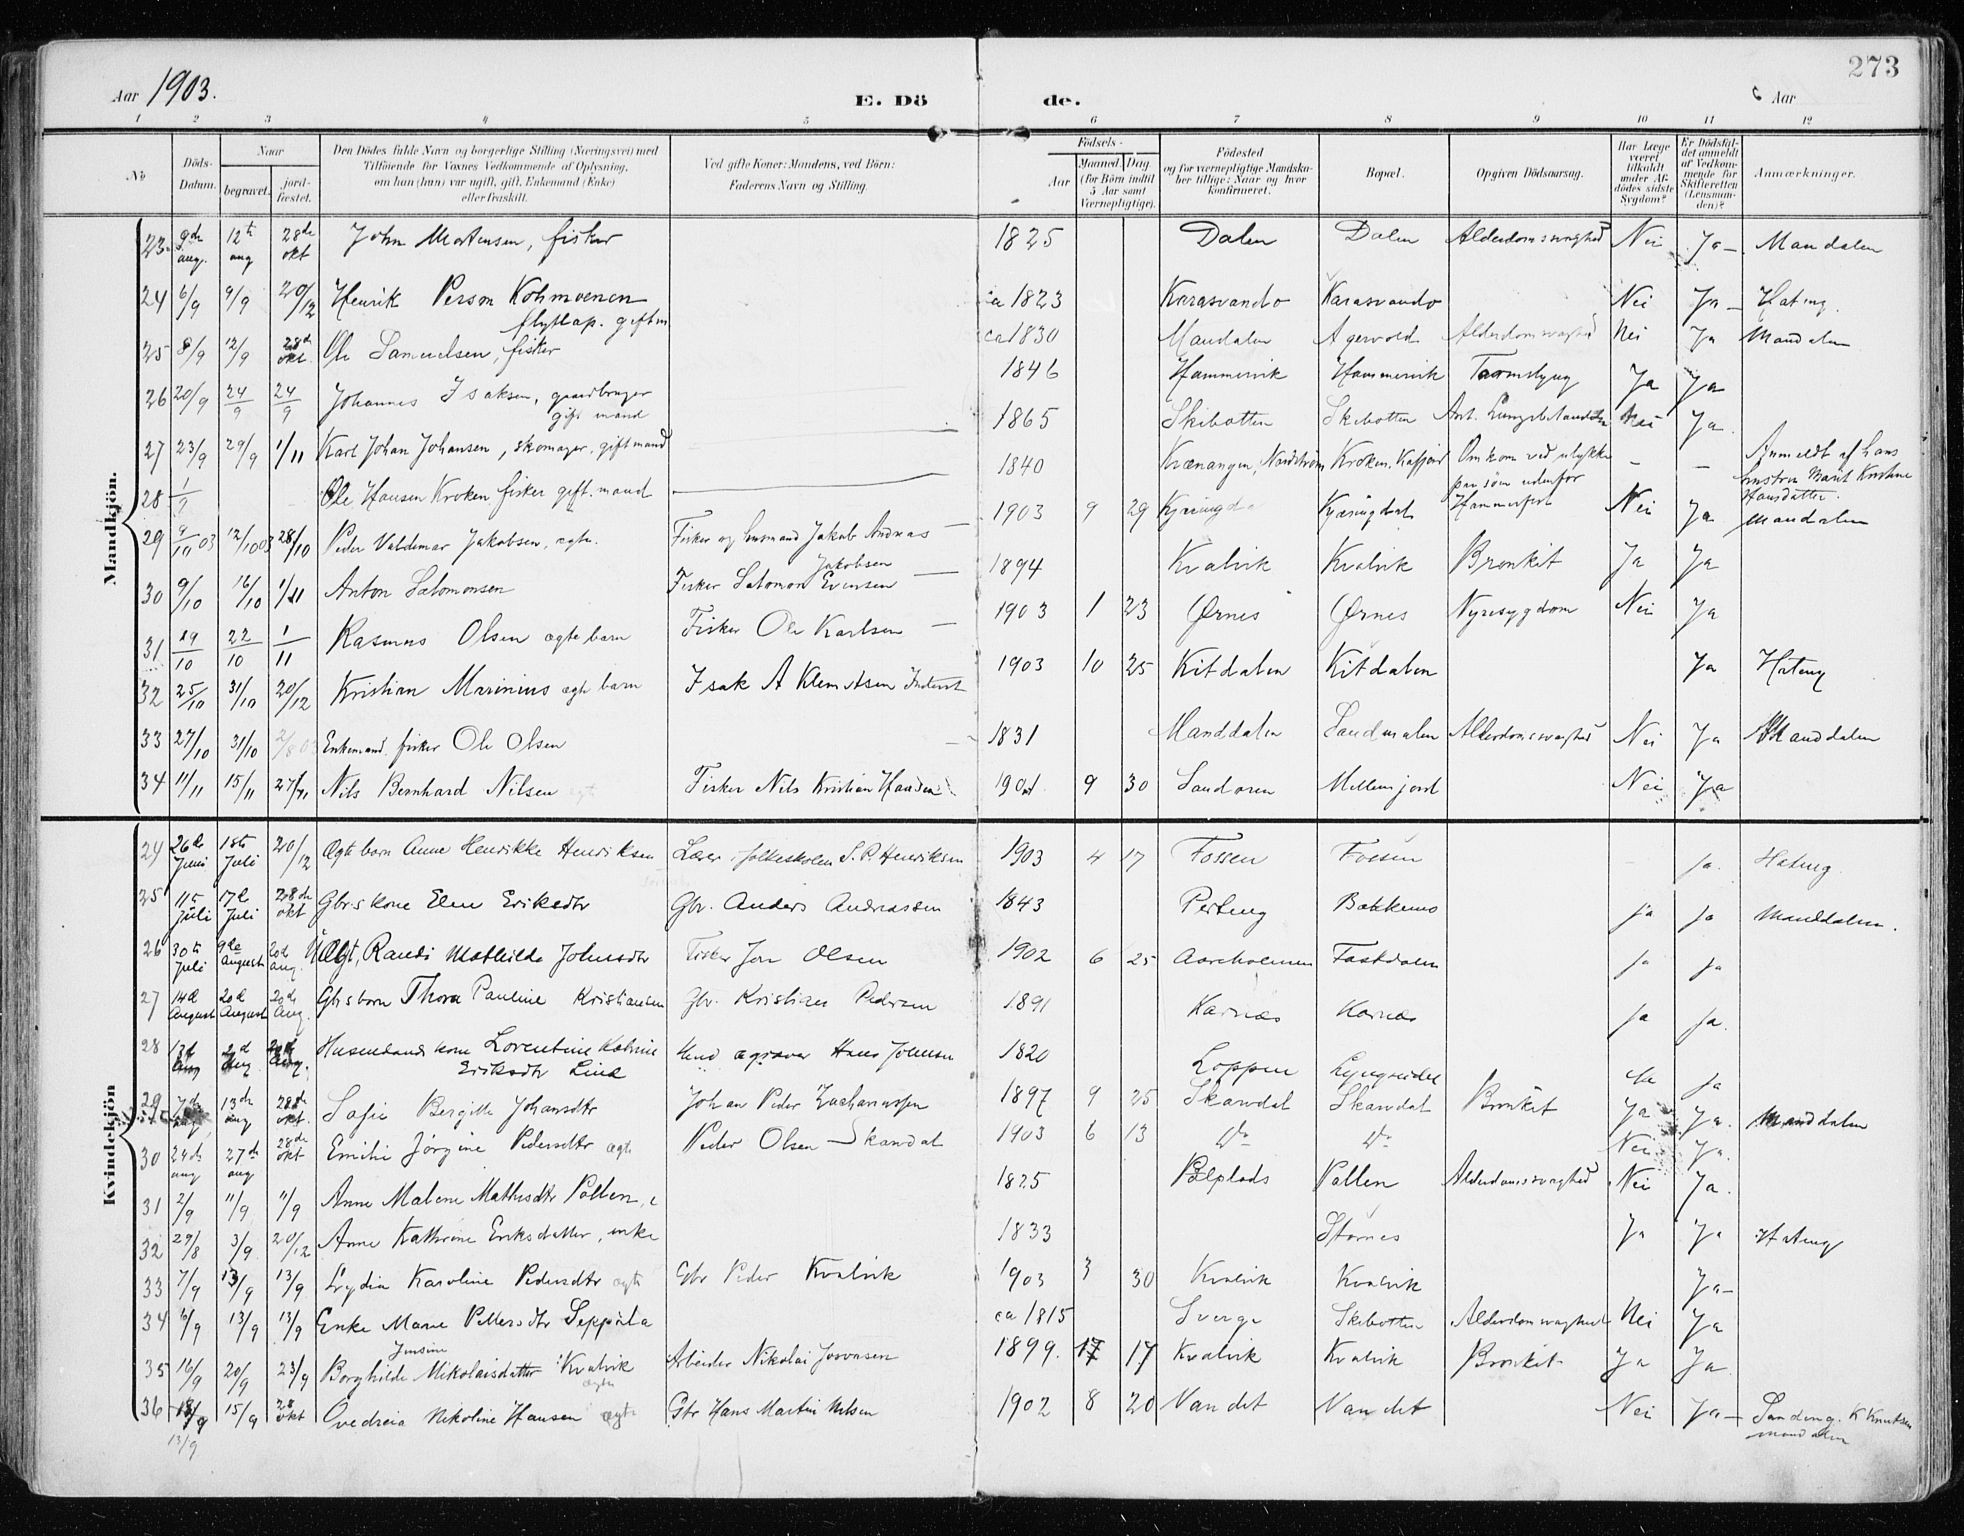 273
Aar 1903.
E. Dö de.
Aar
1 2 3 4 5 6 7 8 9 10 11 12
No
Döds-Datum.
Naar
begravet.
jord-fæstet.
Den Dödes fulde Navn og borgerlige Stilling (Næringsvei) med
Tilföiende for Voxnes Vedkommende af Oplysning,
om han (hun) var ugift, gift, Enkemand (Enke)
eller fraskilt.
Ved gifte Koner: Mandens, ved Börn:
Faderens Navn og Stilling.
Födsels-
Aar
Maaned. Dag
(for Börn indtil
5 Aar samt
Værnepligtige).
Födested
og for værnepligtige Mandska-
ber tillige: Naar og hvor
konfirmeret.
Bopæl.
Opgiven Dödsaarsag.
Har Læge
været
tilkaldt
under Af-
dödes sidste
Sygdom?
Er Dödsfal-
det anmeldt
af Vedkom-
mende for
Skifteretten
(Lensman-
den)?
Anmærkninger.
Mandkjön.
23 9de aug. 12te aug 28de okt John Mortensen, fisker 1825 Dalen Dalen Alderdomssvaghed Nei Ja Mandalen
24 6/9 9/9 20/12 Henrik Person Kohmoenen flytlap. gift m ca 1823 Karasvando Karasvando Nei Ja Hateng
25 8/9 12/9 28de okt. Ole Samuelsen, fisker ca 1830 Mandalen Agervold Alderdomssvaghed Nei Ja Mandalen
26 20/9 24/9 24/9 Johannes Isaksen, gaardbruger gift mand 1846 Hammervik Hammervik Tarmslyng Ja Ja
27 23/9 29/9 1/11 Karl Johan Johansen, skomager, gift mand 1865 Skibotten Skibotten Nei Ja
28 1/9 Ole Hansen Kroken fisker gift. mand 1840 Kvænangen, Kroken, Kafjord Omkom ved ulykke paa söen udenfor Hammerfest - - Anmeldt af hans Marit Kirstine Hansdatter.
29 9/10 03 12/10 03 28/10 Peder Valdemar Jakobsen, ægte. Fisker og husmand Jakob Andreas Jakobsen 1903 9 29 Kjæringdal Kjæringdal Nei Ja Mandalen
30 9/10 16/10 1/11 Anton Salomonsen Fisker Salomon Evensen 1894 Kvalvik Kvalvik Bronkit Ja Ja
31 19/10 22/10 1/11 Rasmus Olsen ægte barn Fisker Ole Karlsen 1903 1 23 Ørnes Ørnes Nyresygdom Nei Ja
32 25/10 31/10 20/12 Kristian Marinius ægte barn Isak A Klemetsen Inderst 1903 10 25 Kitdalen Kitdalen Ja Hateng
33 27/10 31/10 Enkemand. fisker Ole Olsen 1831 Manddalen Alderdomssvaghed Nei Ja Manddalen
34 11/11 15/11 27/11 Nils Bernhard Nilsen ægte Fisker Nils Kristian Hansen 1901 9 30 Sandøren Nei Ja
Kvindekjön
24 26de Juni 18te Juli 20/12 Ægte barn Anne Henrikke Henriksen Lærer i folkeskolen S. P. Henriksen 1903 4 17 Fossen Fossen Ja. Hateng.
25 11te Juli 17de Juli 28de okt Gbr.s kone Elen Eriksdtr Gbr. Anders Andreassen 1843 Perteng Bakkemo ja ja Manddalen.
26 30te Juli 9de August 20de aug. Ægt, Randi Mathilde Johnsdtr Fisker Jon Olsen 1902 6 25 Aareholmen ja ja
27 14de August 20de August 20de Aug. Gbrs barn Thora Pauline Kristiansen Gbr. Kristian Pedersen 1891 Karnæs Karnæs ja ja.
28 Husmandskone Lorentine Katrine Eriksdtr Lind Hans Johnsen 1820 Loppen Lyngseidet ja ja
29 7de aug 13de aug 28de okt. Sofie Bergitte Johansdtr Johan Peder Zachariassen 1897 9 25 Skardal Skardal Bronkit Ja Ja. Manddalen
30 24de aug 27de aug 28de okt Emilie Jørgine Pedersdtr ægte Peder Olsen Skardal 1903 6 13 Do Do Nei Ja.
31 2/9 11/9 11/9 Anne Malene Mathisdtr Pollen, e 1825 Pollen Alderdomssvaghed Nei Ja.
32 29/8 3/9 20/12 Anne Kathrine Eriksdatter, enke 1833 Stornes Ja Ja Hateng
33 7/9 13/9 13/9 Lydia Karoline Pedersdtr ægte Gbr Peder Kvalvik 1903 3 30 Kvalvik Kvalvik Ja
34 6/9 13/9 13/9 Enke Marie Pettersdtr Seppäla ca 1815 Sverge Skibotten Alderdomssvaghed Nei Ja
35 16/9 20/9 23/9 Borghilde Jensine Nikolaisdatter Kvalvik ægte Arbeider Nikolai 1899. 17 Kvalvik Kvalvik Bronkit Ja Ja
36 13/9 15/9 28 okt Ovedreia Nikoline Hansen ægte Gbr Hans Martin Nilsen 1902 8 20 Vandet Vandet Nei Ja K Knutsen Mandalen
13/9